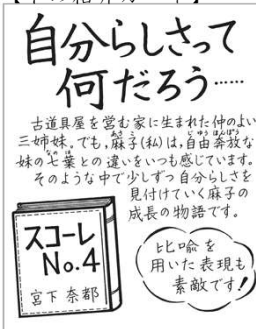 自分らしさって
何だろう……
古道具屋を営む家に生まれた仲のよい
三姉妹。でも,麻子(私)は,自由奔放な
妹の七葉との違いをいつも感じています。
そのような中で少しずつ自分らしさを
見付けていく麻子の
成長の物語です。
スコーレ
No.4
宮下 奈都
比喩を
用いた表現も
素敵です!